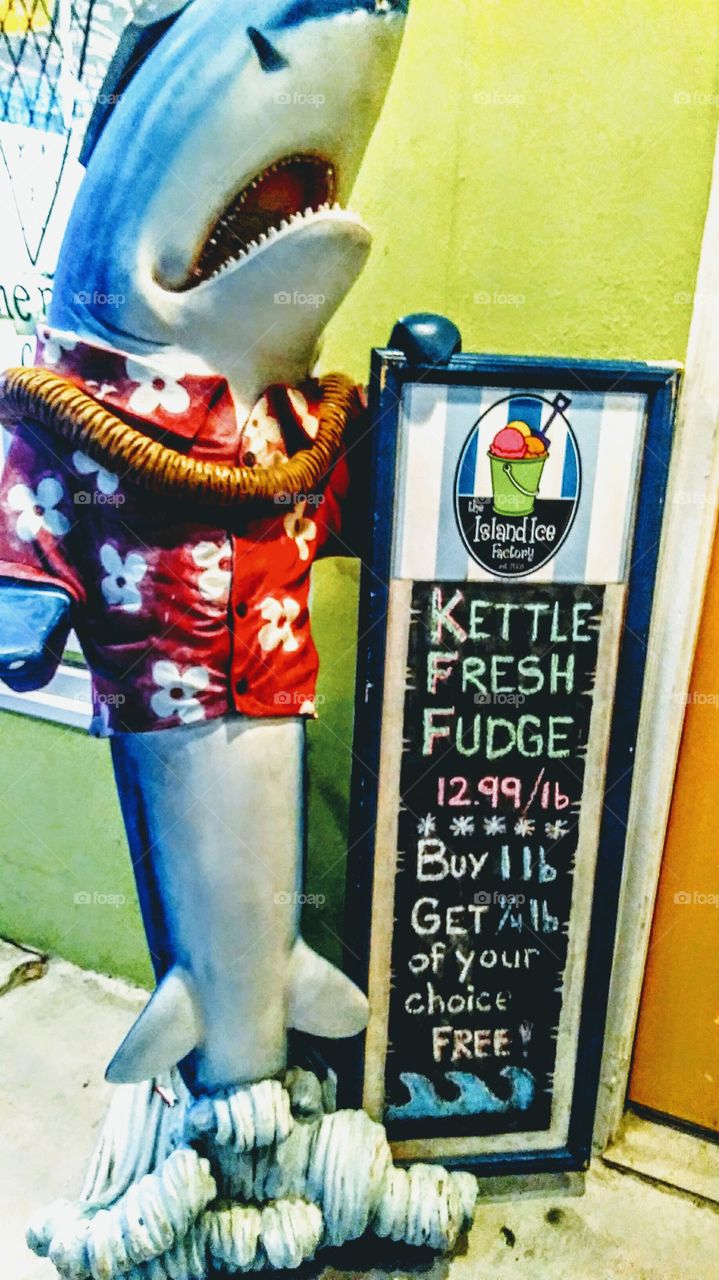 the
Island Ice
Factory
KETTLE
FRESH
FUDGE
12.99/lb
BUY 1 lb
GET 1/4 lb
of your
choice
FREE!